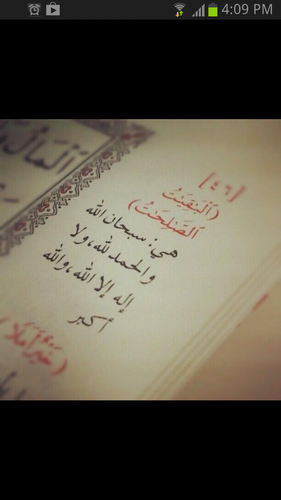 4:09 PM
ٱلْمَالُ
[٤٦]
(ٱلْبَٰقِيَٰتُ
ٱلصَّٰلِحَٰتُ)
هي: سبحان الله
والحمد لله، ولا
إله إلا الله، والله
أكبر
(خَيْرٌ أَمَلًا)